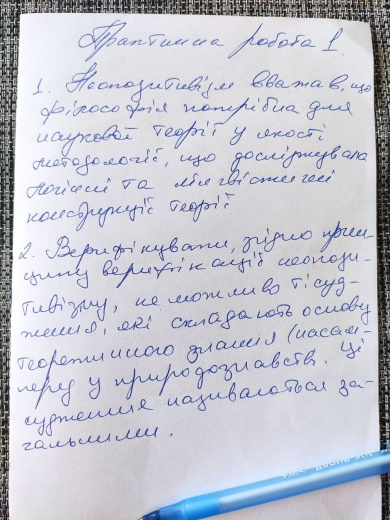 Практична робота 1.
1. Неопозитивізм вважав, що
філософія потрібна для
наукової теорії у якості
методології, що досліджувала
логічні та лінгвістичні
конструкції теорії
2. Верифікувати, згідно прин-
ципу верифікації неопози-
тивізму, не можливо ті суд-
ження, які складають основу
теоретичного знання (насам-
перед у природознавстві. Ці
судження називаються за-
гальними.